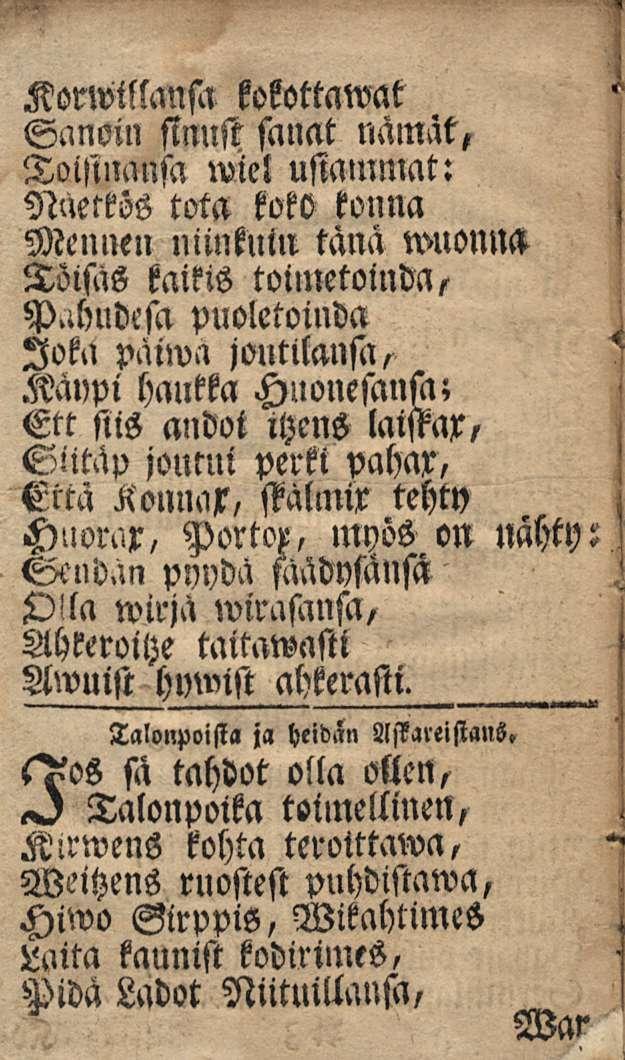 Korwillansa kokottawat
Sanoin sinust sanat nämät,
Toisinansa wiel ustammat:
Näetkös tota koko konna
Mennen niinkuin tänä wuonna
Töisäs kaikis toimetoinda,
Pahudesa puoletoinda
Joka päiwä joutilansa,
Käypi haukka Huonesansa;
Ett siis andoi itzens laiskax,
Siitäp joutui perki pahax,
Että Konnax, skälmix tehty
Huorax, Portox, myös on nähty:
Sendän pyydä säädysänsä
Olla wirjä wirasansa,
Ahkeroitze taitawasti
Awuist hywist ahkerasti.
Talonpoista ja heidän Askareistans.
Jos sä tahdot olla ollen,
Talonpoika toimellinen,
Kirwens kohta teroittawa,
Weitzens ruostest puhdistawa,
Hiwo Sirppis, Wikahtimes
Laita kaunist kodirimes,
Pidä Ladot Niituillansa,
Wax